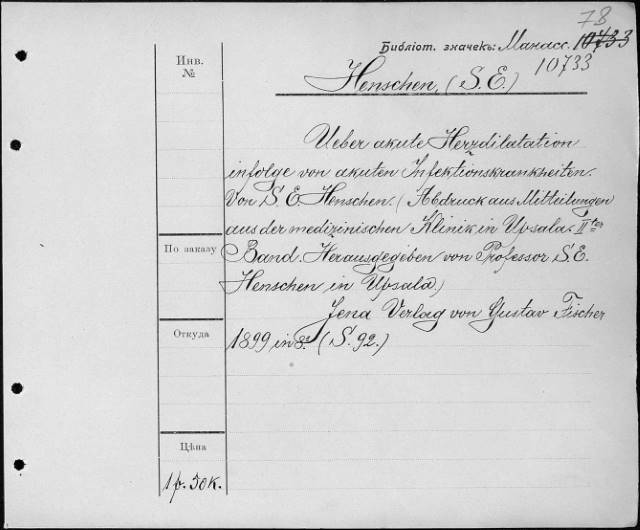 78
Библіот. значекъ: Манасс. 10733
10733
Инв.
№
Henschen, (S. E.)
Ueber akute Herzdilatation
infolge von akuten Infektionskrankheiten.
Von S. E. Henschen. (Abdruck aus Mitteilungen
aus der medizinischen Klinik in Upsala. II ter
По заказу
Band. Herausgegeben von Professor S. E.
Henschen in Upsala.)
Jena Verlag von Gustav Fischer
Откуда
1899 in 8º. (S. 92.)
Цѣна
1 р. 50 к.